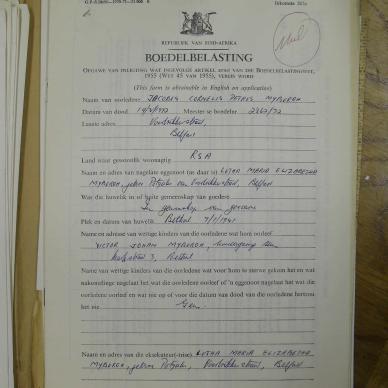 REPUBLIEK VAN SUID-AFRIKA
BOEDELBELASTING
OPGAWE VAN INLIGTING WAT INGEVOLGE ARTIKEL AGT VAN DIE BOEDELBELASTINGWET,
1955 (WET 45 VAN 1955), VEREIS WORD
(This form is obtainable in English on application)
Naam van oorledene JACOBUS CORNELIS PETRUS MYBURGH
Datum van dood Meester se boedelnr. 2262/72
Laaste adres Voortrekkerstraat,
Belfast
Land waar gewoonlik woonagtig RSA
Naam en adres van nagelate eggenoot (as daar is) MARIA ELIZABETHA
MYBURGH, gebore Potgieter van Voortrekkerstraat, Belfast
Was die huwelik in of buite gemeenskap van goedere
In gemeenskap van goedere
Plek en datum van huwelik Bethal
Naam en adresse van wettige kinders van die oorledene wat hom oorleef
VICTOR JOHAN MYBURGH,
3, Bethal
Naam van wettige kinders van die oorledene wat voor hom te sterwe gekom het en wat
nakomelinge nagelaat het wat die oorledene oorleef of 'n eggenoot nagelaat het wat die
oorledene oorleef en wat nie op of voor die datum van dood van die oorledene hertrou
het nie Geen
Naam en adres van die eksekuteur(-trise) MARIA ELIZABETHA
MYBURGH, gebore Potgieter, Voortrekkerstraat, Belfast